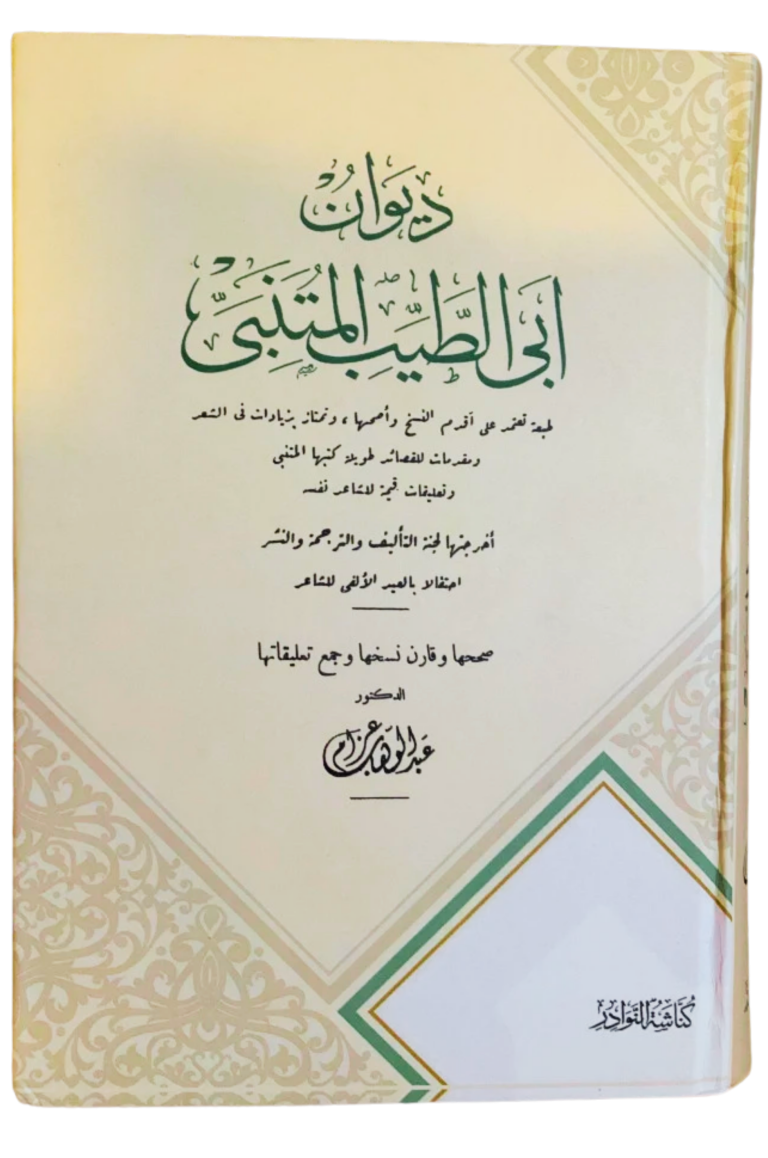 ديوان
أبى الطَّيِّبِ المُتَنَبِّى
طبعة تعتمد على أقدم النسخ وأصحها، وتمتاز بزيادات فى الشعر
ومقدمات للقصائد طويلة كتبها المتنبى
وتعليقات قيمة للشاعر نفسه
أخرجتها لجنة التأليف والترجمة والنشر
احتفالا بالعيد الألفى للشاعر
صححها وقارن نسخها وجمع تعليقاتها
الدكتور
عبد الوهاب عزام
كُنَّاشَةُ النَّوَادِرِ